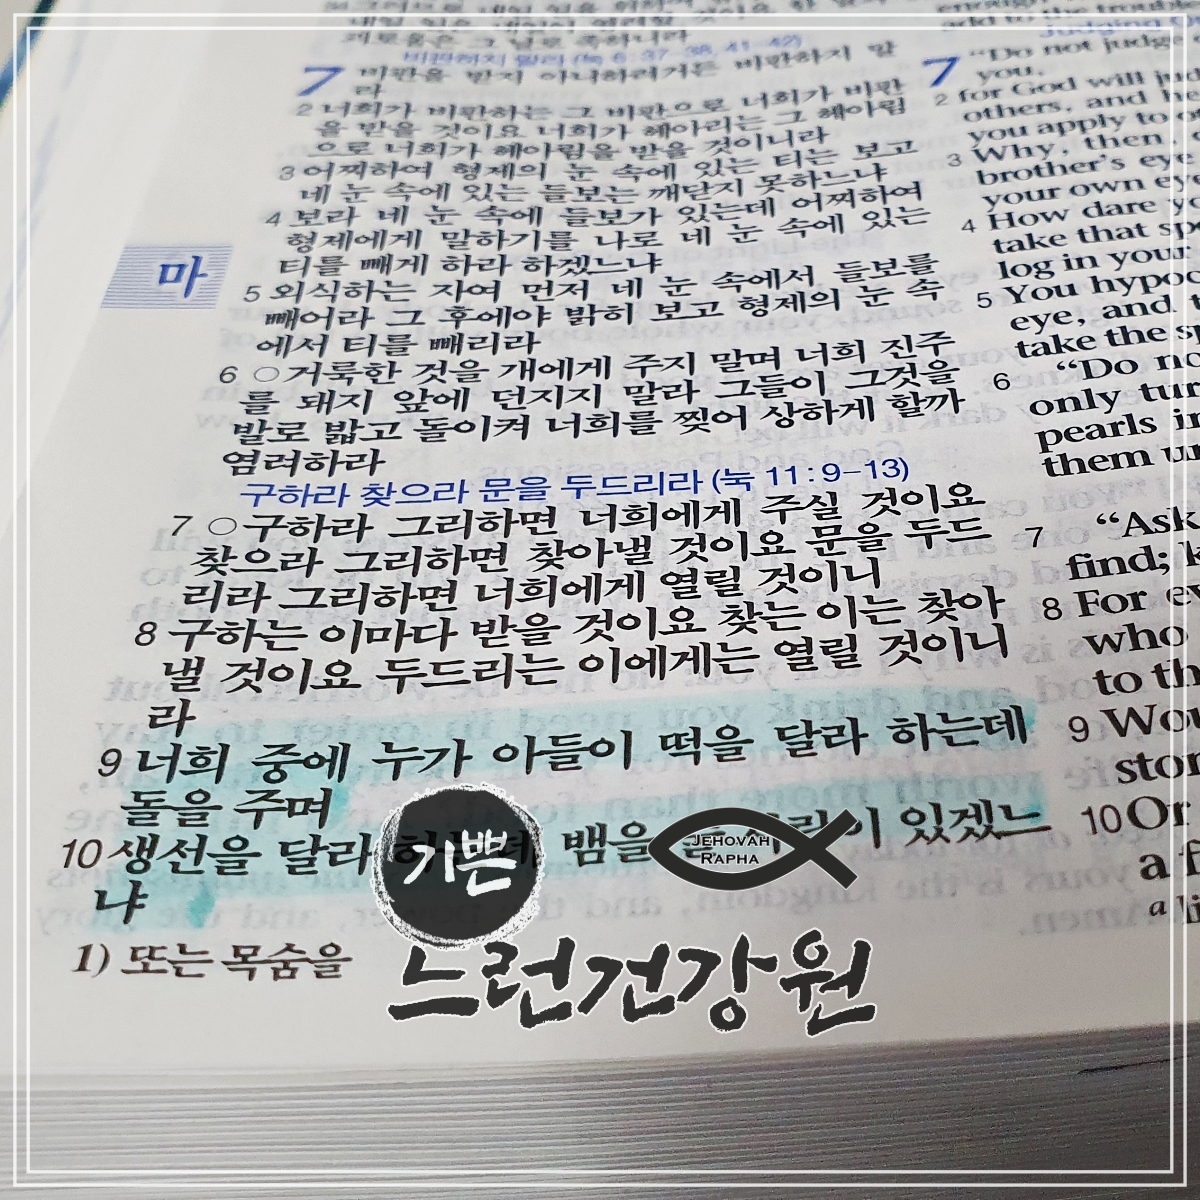 괴로움은 그 날로 족하니라
비판하지 말라 (눅 6:37-38, 41-42)
7 비판을 받지 아니하려거든 비판하지 말
라
2 너희가 비판하는 그 비판으로 너희가 비판
을 받을 것이요 너희가 헤아리는 그 헤아림
으로 너희가 헤아림을 받을 것이니라
3 어찌하여 형제의 눈 속에 있는 티는 보고
네 눈 속에 있는 들보는 깨닫지 못하느냐
4 보라 네 눈 속에 들보가 있는데 어찌하여
형제에게 말하기를 나로 네 눈 속에 있는
티를 빼게 하라 하겠느냐
마
5 외식하는 자여 먼저 네 눈 속에서 들보를
빼어라 그 후에야 밝히 보고 형제의 눈 속
에서 티를 빼리라
6 ○거룩한 것을 개에게 주지 말며 너희 진주
를 돼지 앞에 던지지 말라 그들이 그것을
발로 밟고 돌이켜 너희를 찢어 상하게 할까
염려하라
구하라 찾으라 문을 두드리라 (눅 11:9-13)
7 ○구하라 그리하면 너희에게 주실 것이요
찾으라 그리하면 찾아낼 것이요 문을 두드
리라 그리하면 너희에게 열릴 것이니
8 구하는 이마다 받을 것이요 찾는 이는 찾아
낼 것이요 두드리는 이에게는 열릴 것이니
라
9 너희 중에 누가 아들이 떡을 달라 하는데
돌을 주며
10 생선을 달라 뱀을 있겠느
냐
1) 또는 목숨을
add to the
Judging
7 "Do not judge
you,
2 for God will
others, and
you apply to
3 Why, then,
brother's eye
your own eye
4 How dare
take that
log in your
5 You
eye, and
take the
6 "Do
only
pearls
them
7 "Ask
find;
8 For
who
to
9
10 Or
a
a
기쁜
JEHOVAH
RAPHA
느런건강원